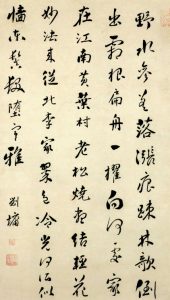 野水參差落漲痕疎林欹倒
出霜根扁舟一櫂向何處家
在江南黃葉村老松燒盡結輕花
妙法來從北李家翠色冷光何所似
墻東鬒髮墮寒雅
劉墉